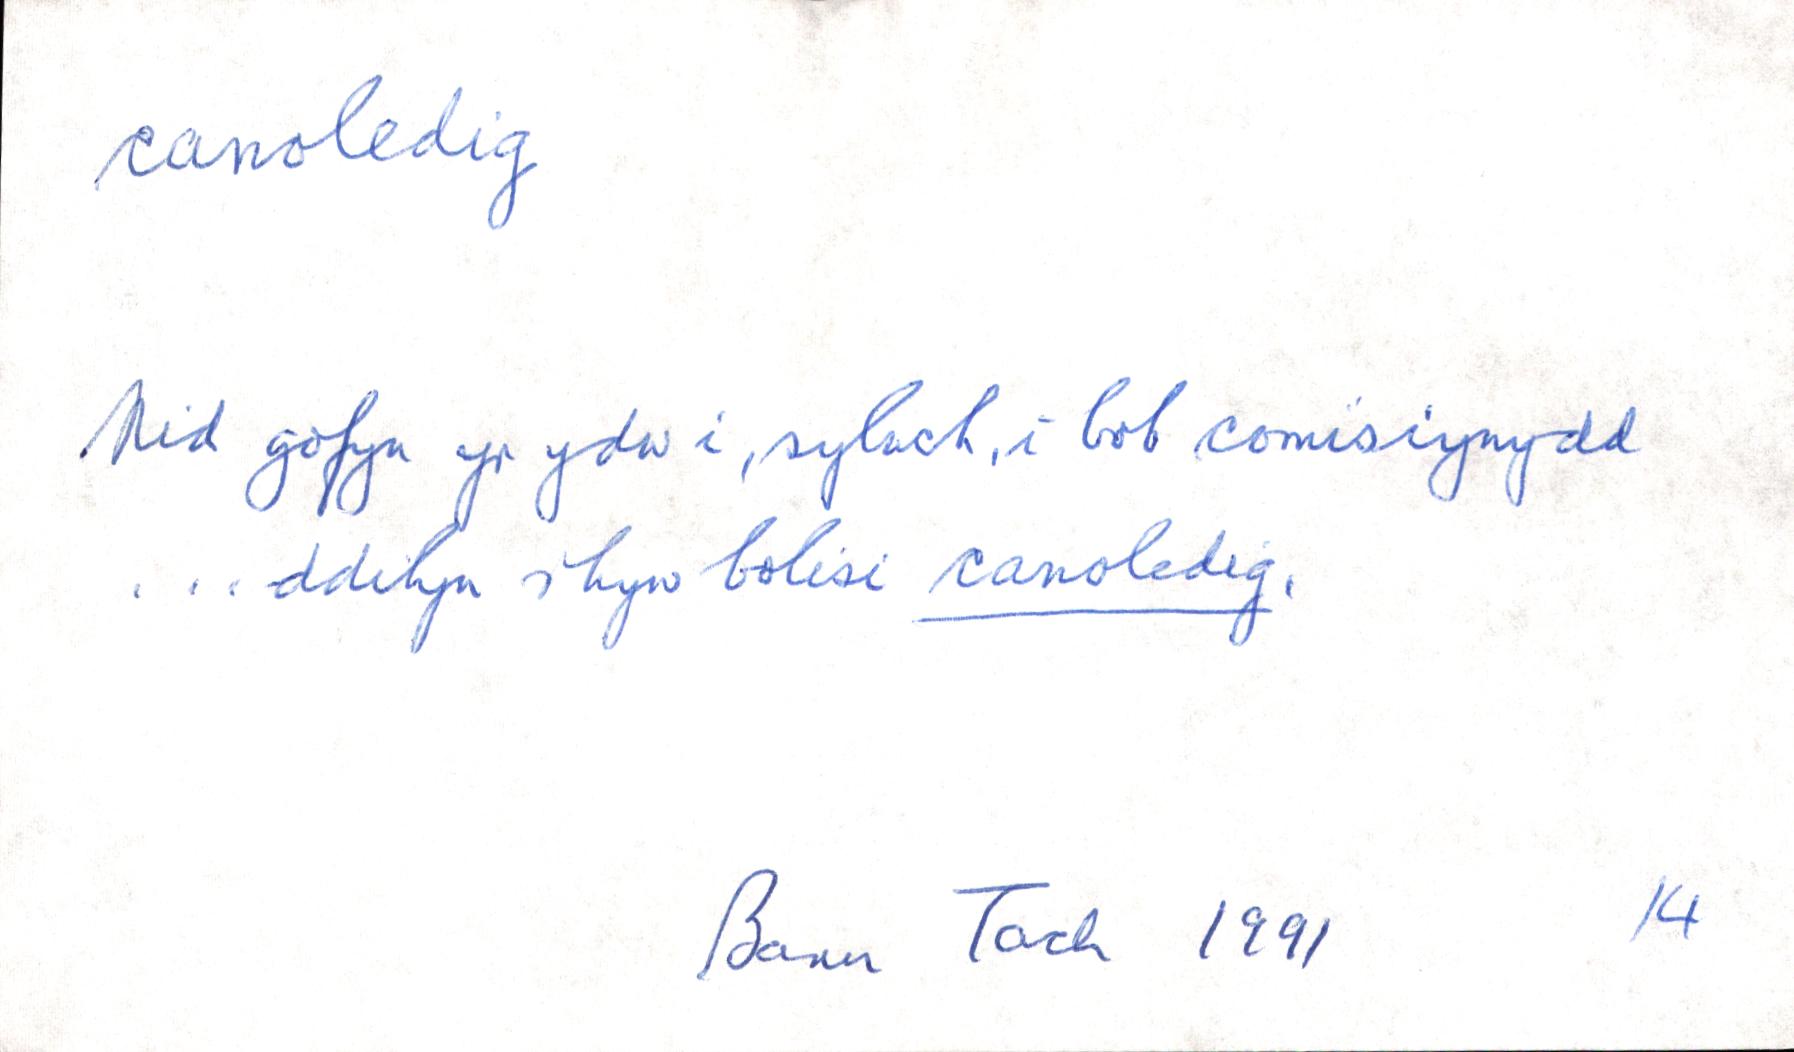 canoledig
Nid gofyn yr ydw i, sylwch, i bob comisiynydd
... ddilyn rhyw bolisi canoledig.
Baner Tach 1991 14